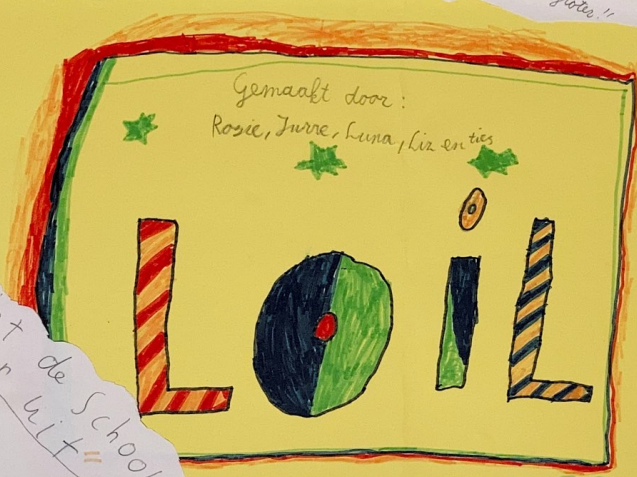 groter!!
Gemaakt door:
Rosie, Jurre, Luna, Liz en ties
LOiL
de School
uit